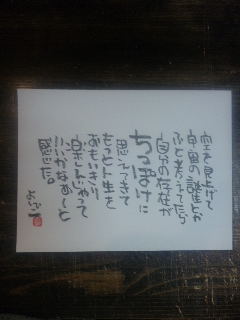 空を見上げて
宇宙の誕生な
ふと考えてたら
自分の存在が
ちっぽけに
思えてきて
もっと人生を
おもいきり
楽しんじゃって
いいかなぁ〜と
思った。